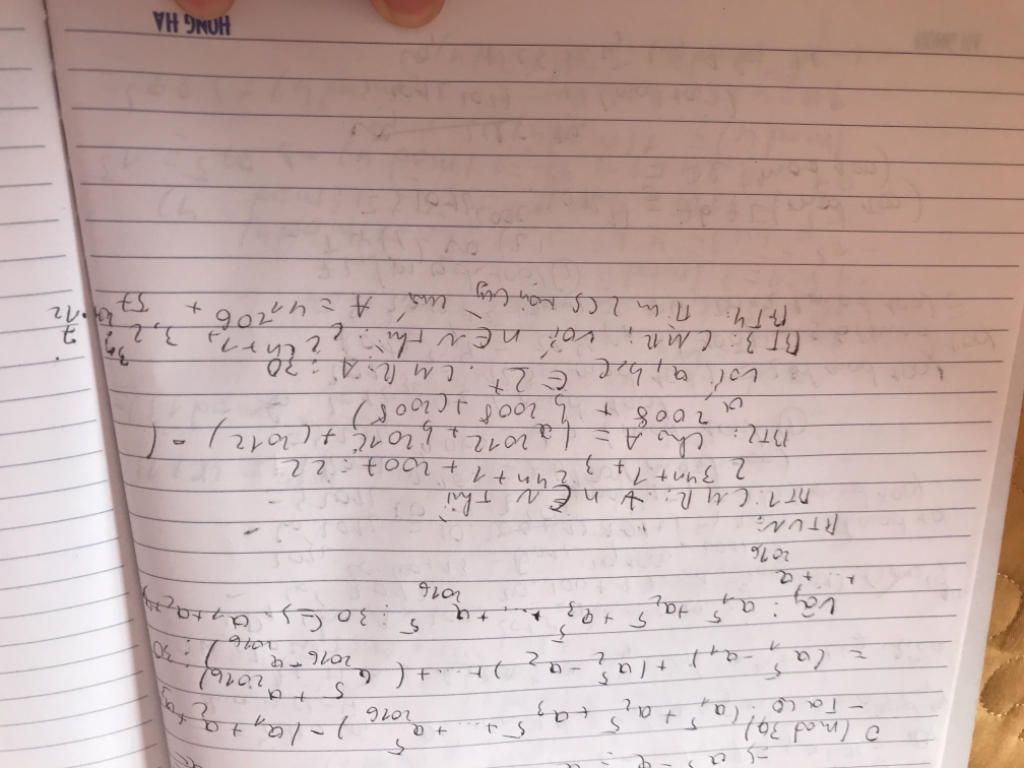 => a⁵ - a ≡
0 (mod 30)
- Ta có: (a₁⁵ + a₂⁵ + a₃⁵ + ... + a₂₀₁₆⁵) - (a₁ + a₂ + a₃
= (a₁⁵ - a₁) + (a₂⁵ - a₂) + ... + (a₂₀₁₆⁵ - a₂₀₁₆) ⋮ 30
Vậy: a₁⁵ + a₂⁵ + a₃⁵ + ... + a₂₀₁₆⁵ ⋮ 30 <=> a₁ + a₂ + a₃
+ ... + a₂₀₁₆
BTVN:
BT1: CMR: ∀ n ∈ N thì
2^3^4n+1 + 3^2^4n+1 + 2007 ⋮ 22
BT2: Cho A = (a^2012 + b^2012 + c^2012) - (
a^2008 + b^2008 + c^2008)
với a, b, c ∈ Z+. CMR: A ⋮ 30
BT3: CMR, với n ∈ N thì:
BT4: Tìm 2 CS tận cùng của A = 41^206 + 57
HONG HA